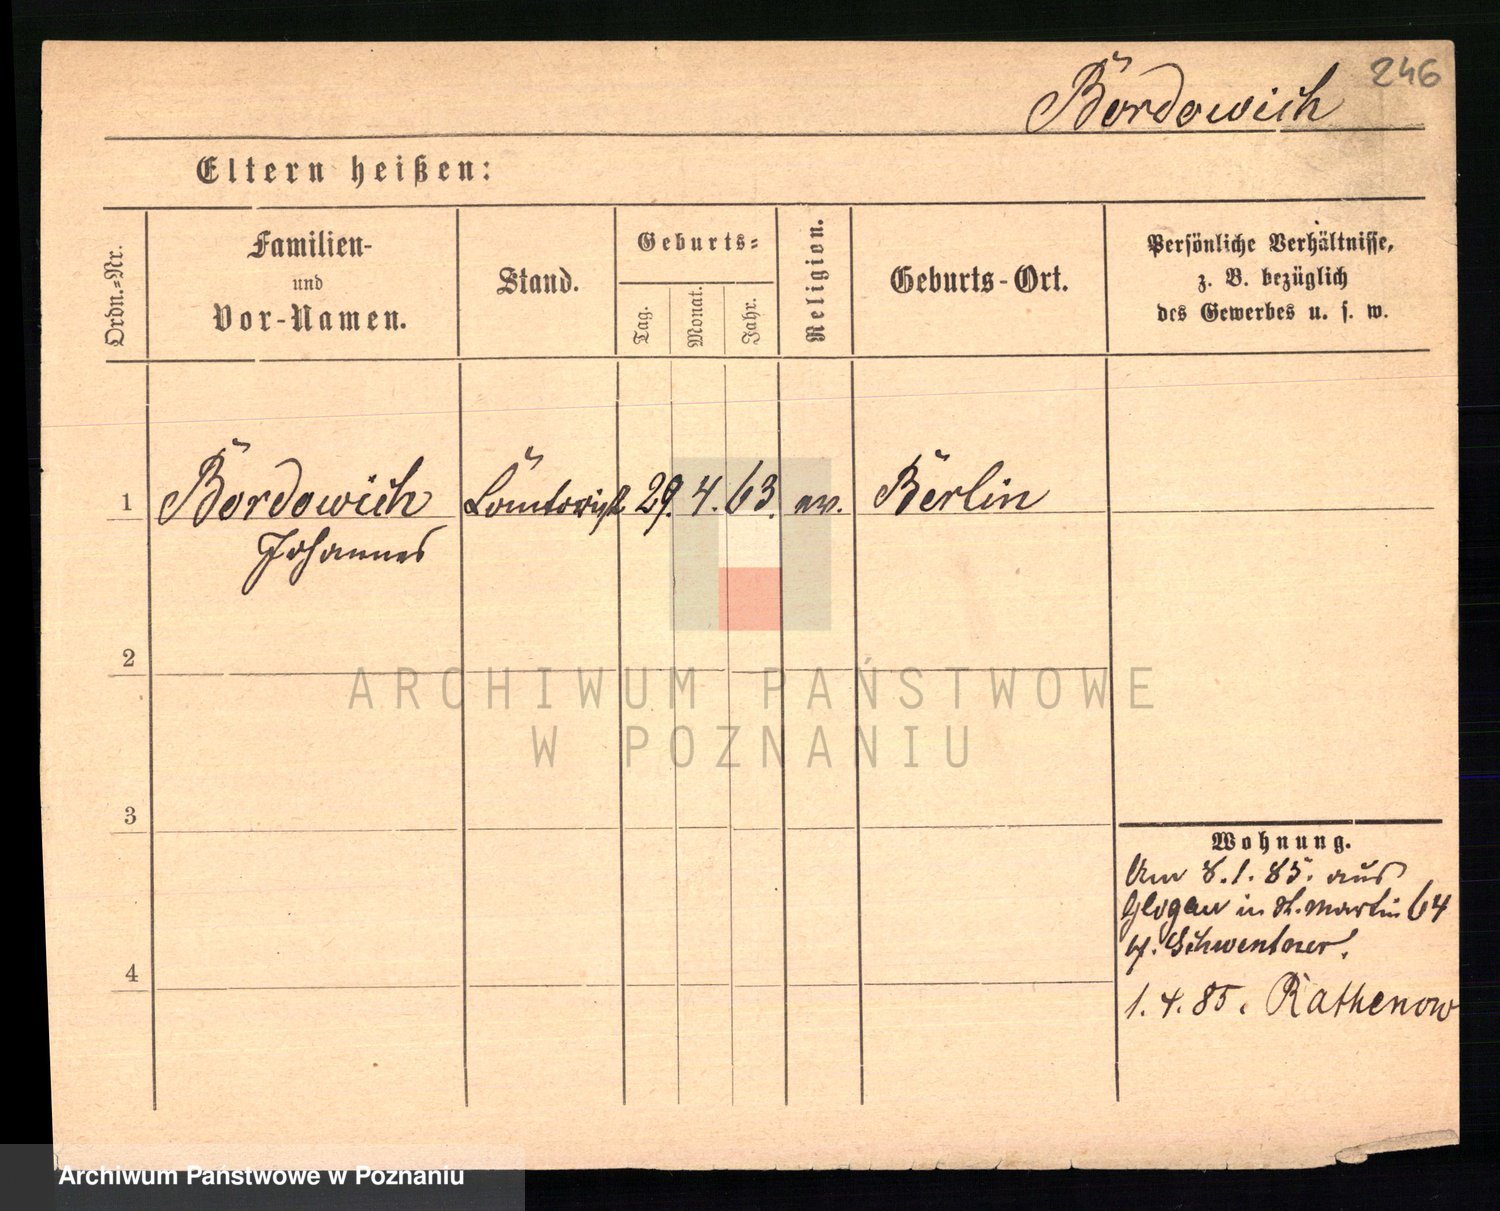 246
Bordowich
Eltern heißen:
Ordn.-Nr.
Familien-
und
Vor-Namen.
Stand.
Geburts-
Tag.
Monat.
Jahr.
Religion.
Geburts-Ort.
Persönliche Verhältnisse,
z. B. bezüglich
des Gewerbes u. s. w.
1 Bordowich 29. 4. 63. ev. Berlin
Johannes
2
3
4
Wohnung.
Am 8.1.85. aus
Glogau in St. Martin 64
1.4.85. Rathenow
ARCHIWUM PAŃSTWOWE
W POZNANIU
Archiwum Państwowe w Poznaniu